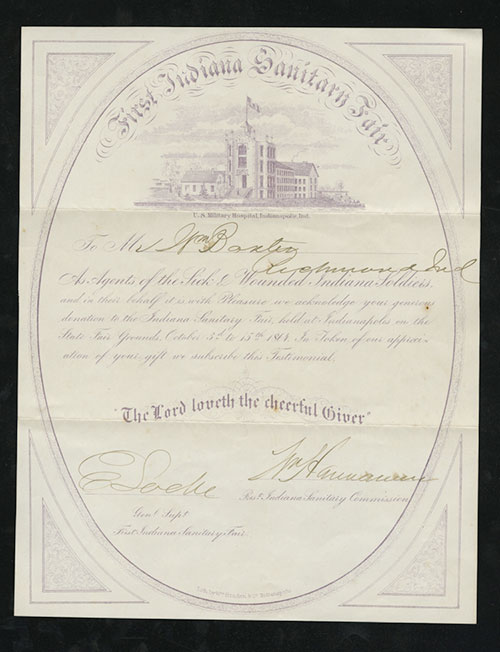 First Indiana Sanitary Fair
U.S. Military Hospital, Indianapolis, Ind.
To Mr Wm Baxter
Richmond Ind
As Agents of the Sick & Wounded Indiana Soldiers,
and in their behalf it is with Pleasure we acknowledge your generous
donation to the Indiana Sanitary Fair, held at Indianapolis on the
State Fair Grounds, October 3d to 15th 1864. In Token of our appreci-
ation of your gift we subscribe this Testimonial.
"The Lord loveth the cheerful Giver"
E Locke
Wm Hannaman
Genl. Supt.
Prest. Indiana Sanitary Commission
First Indiana Sanitary Fair.